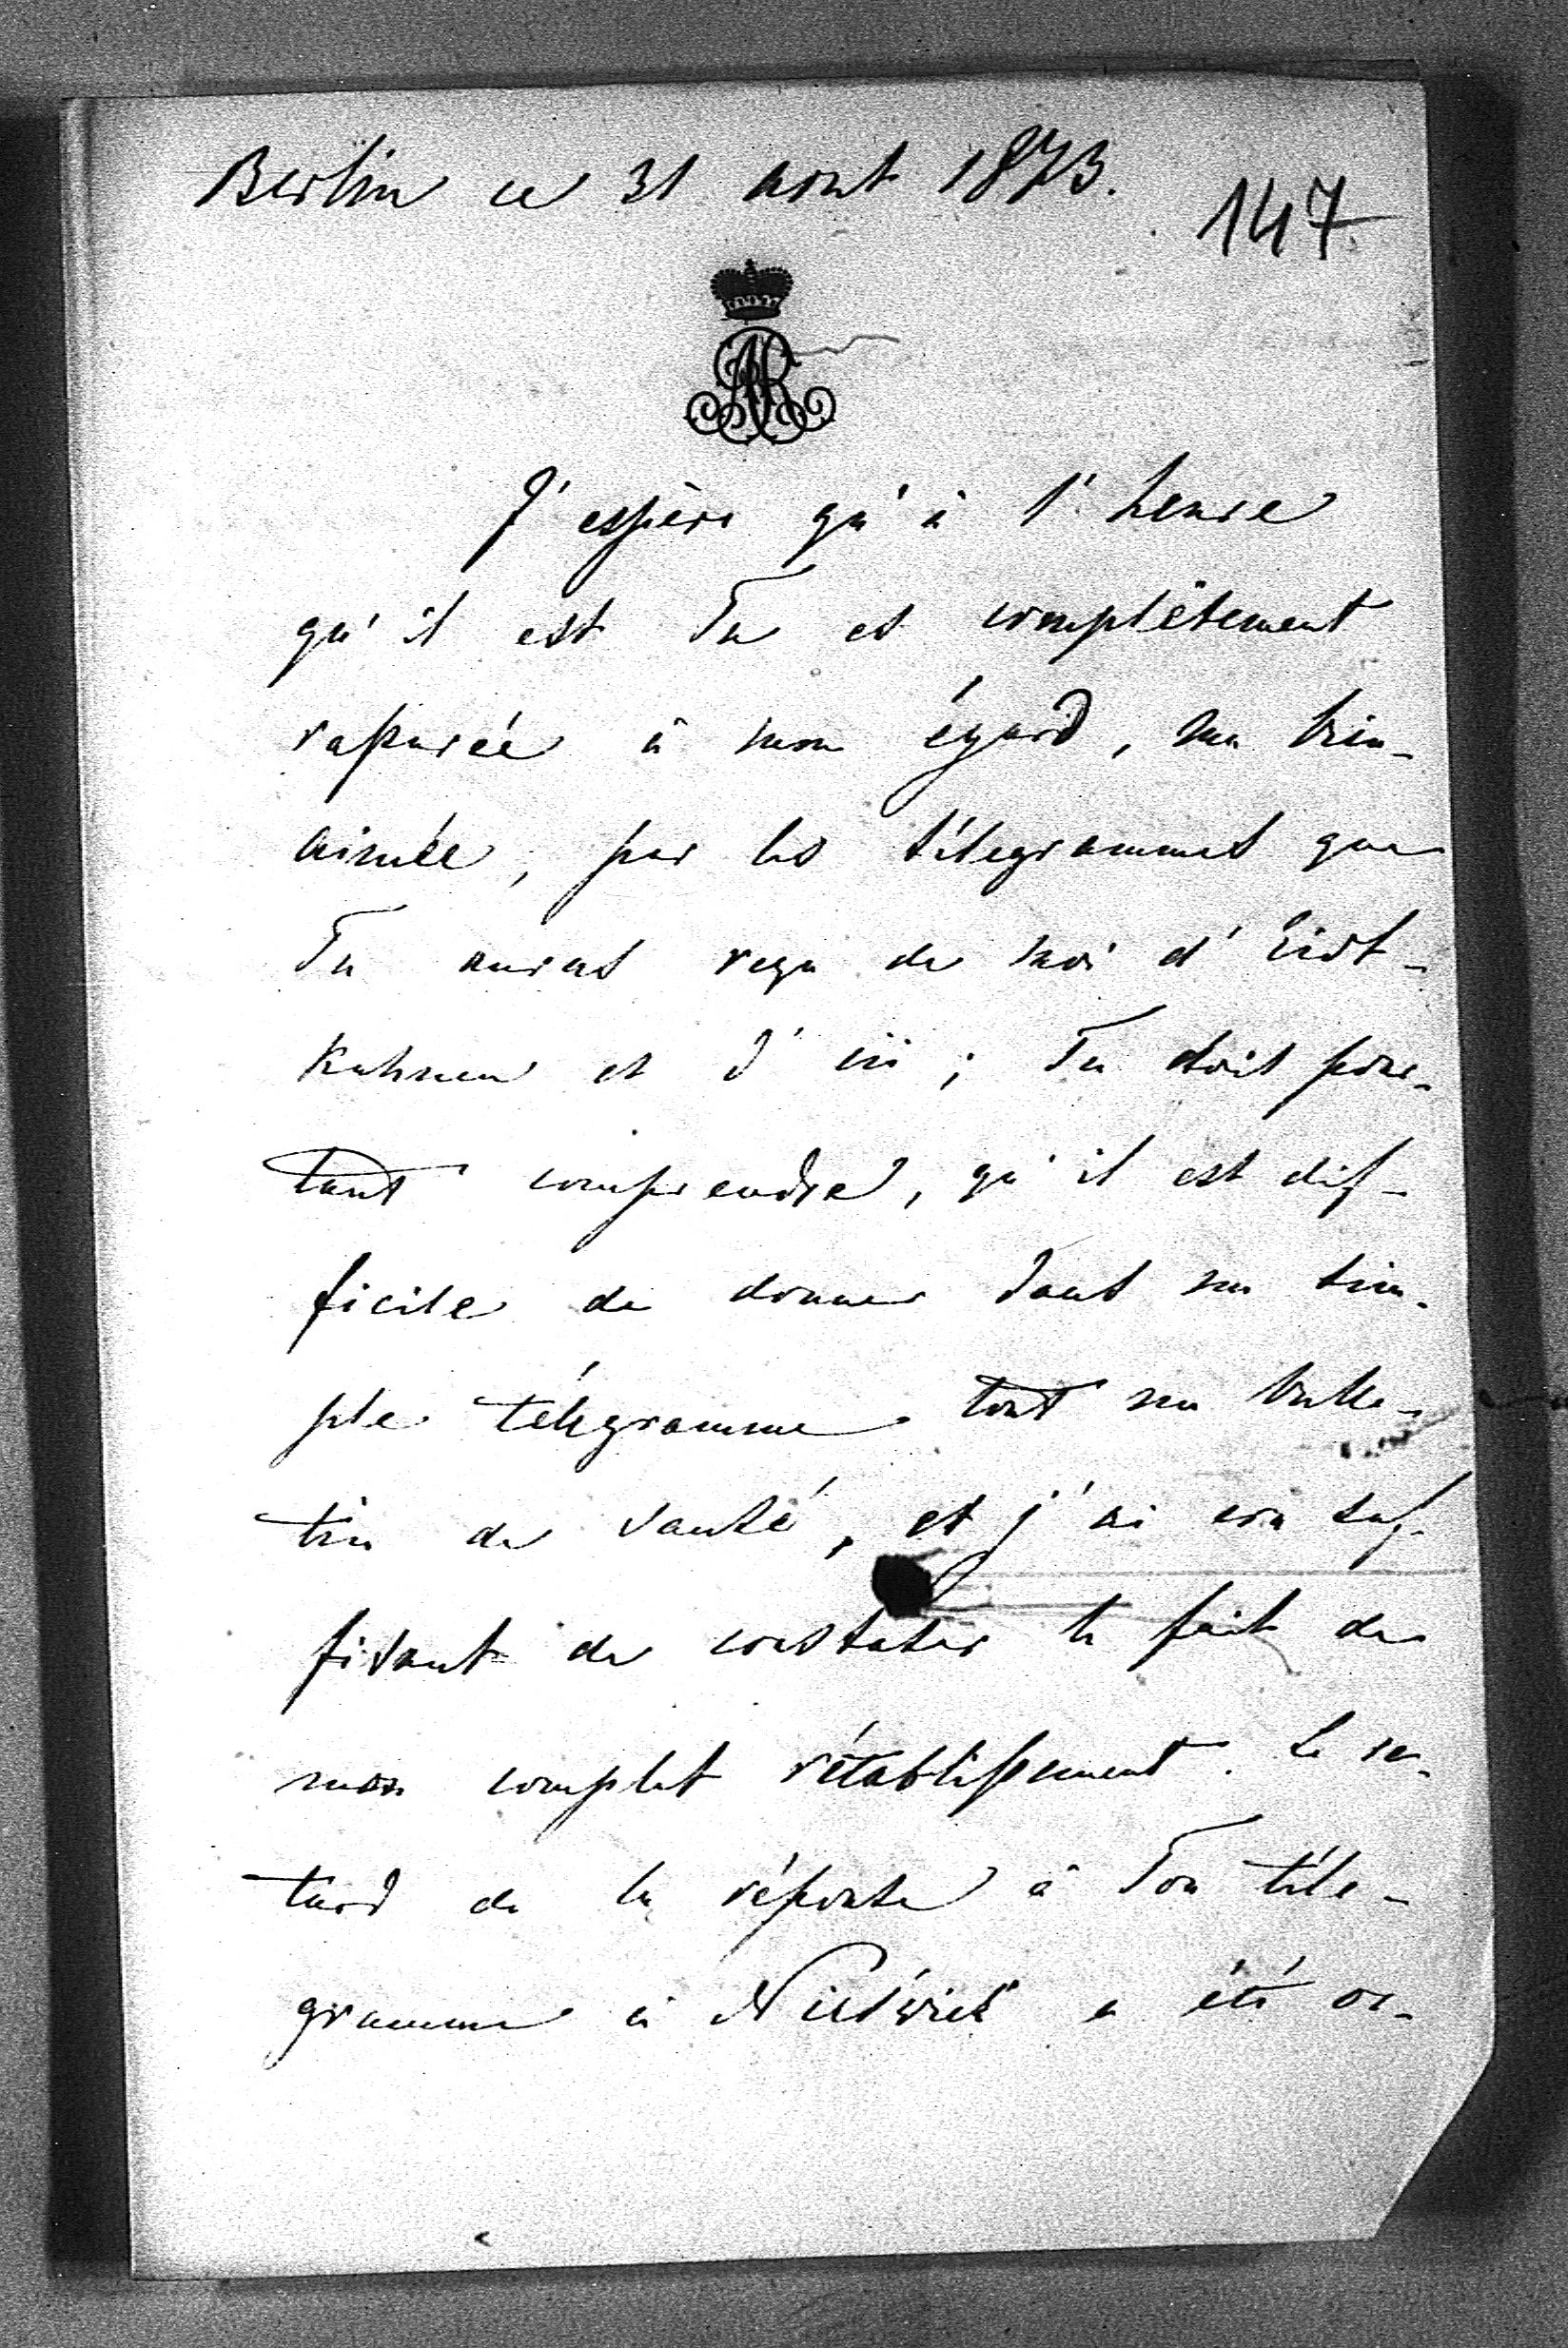 Berlin ce 31 aout 1873.
147
AR
J'espère qu'à l'heure
qu'il est Tu es complètement
rassurée à mon égard, ma bien-
aimée, par les télegrammes que
Tu auras reçu de moi d'Eidt-
kuhnen et d'ici; Tu dois pour-
tant comprendre, qu'il est dif-
ficile de donner dans un sim-
ple télégramme tout un bulle-
tin de santé, et j'ai cru suf-
fisant de constater le fait de
mon complet rétablissement. Le re-
tard de la réponse à Ton téle-
gramme à a été oc-